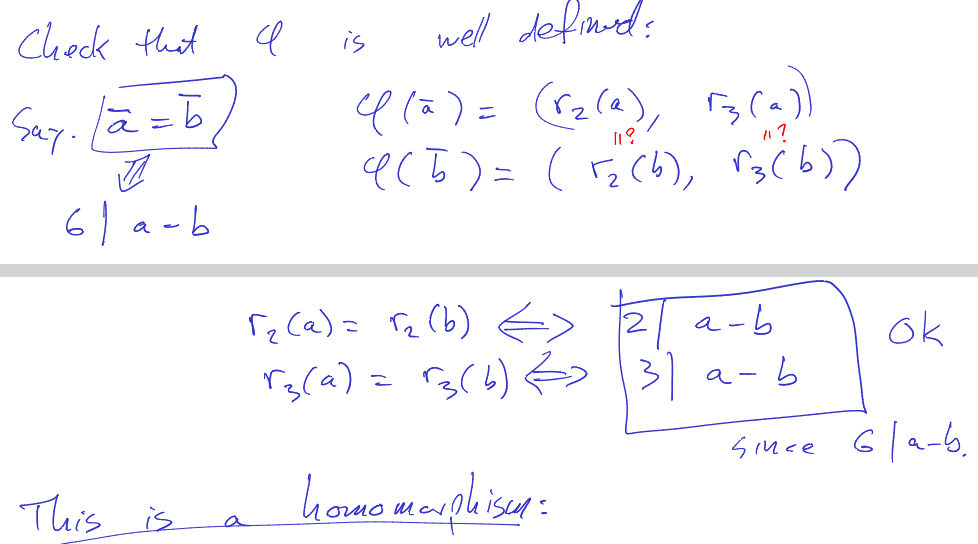 Check that φ is well defined:
Say. ā = b̄ φ(ā) = (r₂(a), r₃(a))
"? "?
⇕ φ(b̄) = (r₂(b), r₃(b))
6 | a - b
r₂(a) = r₂(b) ⟺ 2 | a - b OK
r₃(a) = r₃(b) ⟺ 3 | a - b
since 6 | a-b.
This is a homomorphism: